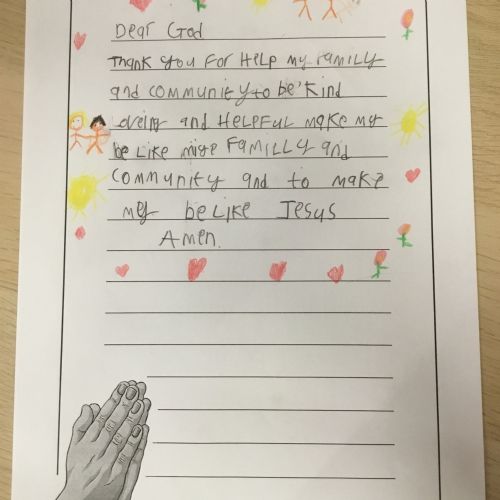 Dear God
Thank you For HelP my FamiLLy
and community to be kind
Loveing and HELPFUL make my
be Like mige FamiLLY and
community and to make
my be Like Jesus
Amen.